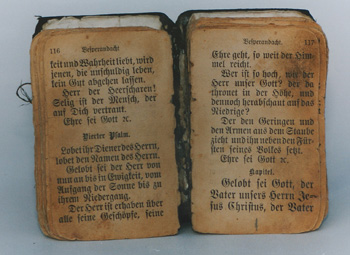 116 Vesperandacht.
keit und Wahrheit liebt, wird
jenen, die unschuldig leben,
kein Gut abgehen lassen.
Herr der Heerscharen!
Selig ist der Mensch, der
auf Dich vertraut.
Ehre sei Gott ꝛc.
Vierter Psalm.
Lobet ihr Diener des Herrn,
lobet den Namen des Herrn.
Gelobt sei der Herr von
nun an bis in Ewigkeit, vom
Aufgang der Sonne bis zu
ihrem Niedergang.
Der Herr ist erhaben über
alle seine Geschöpfe, seine
Vesperandacht. 117
Ehre geht, so weit der Him-
mel reicht.
Wer ist so hoch, wie der
Herr unser Gott? der da
thronet in der Höhe, und
dennoch herabschaut auf das
Niedrige?
Der den Geringen und
den Armen aus dem Staube
zieht und ihn neben den Für-
sten seines Volkes setzt.
Ehre sei Gott ꝛc.
Kapitel.
Gelobt sei Gott, der
Vater unsers Herrn Je-
sus Christus, der Vater